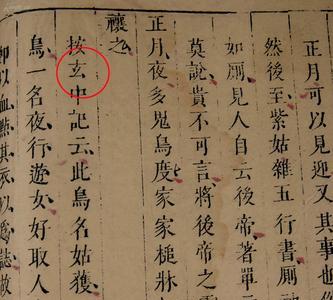 正月可以見迎又其事也
然後至紫姑雜五行書厠
如厠見人自云後帝著單
莫說貴不可言將後帝之
正月夜多鬼鳥度家家槌牀
禳之
按玄中記云此鳥名姑獲
鳥一名夜行遊女好取人
即以血點其衣以為誌故